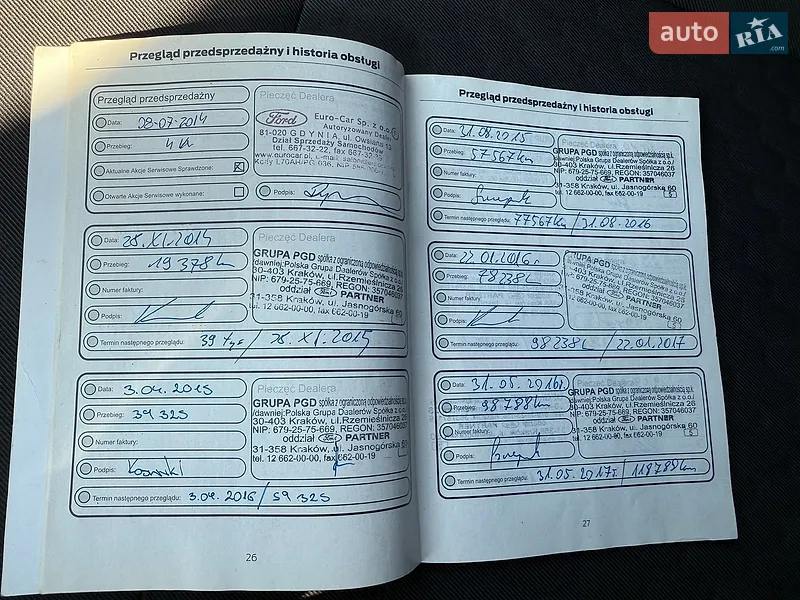 auto RIA
.com
Przegląd przedsprzedażny i historia obsługi
Przegląd przedsprzedażny
Data: 08-07-2014
Przebieg:
Aktualne Akcje Serwisowe Sprawdzone:
Otwarte Akcje Serwisowe wykonane:
Pieczęć Dealera
Ford
Euro-Car Sp. z o.o.
Autoryzowany Dealer
81-020 GDYNIA, ul. Owsiana
Dział Sprzedaży Samochodów
Podpis:
Data: 28.XI.2014
Przebieg: 19 378 km
Numer faktury:
Podpis:
Termin następnego przeglądu: 39 tys / 28.XI.2015
Pieczęć Dealera
GRUPA PGD spółka z ograniczoną odpowiedzialnością sp.k.
/dawniej:Polska Grupa Dealerów Spółka z o.o./
30-403 Kraków, ul.Rzemieślnicza 26
NIP: 679-25-75-669, REGON: 357046037
oddział Ford PARTNER
31-358 Kraków, ul. Jasnogórska 60
tel. 12 662-00-00, fax 662-00-19
Data: 3.04.2015
Przebieg: 39 325
Numer faktury:
Podpis:
Termin następnego przeglądu: 3.04.2016 / 59 325
Pieczęć Dealera
GRUPA PGD spółka z ograniczoną odpowiedzialnością sp.k.
/dawniej:Polska Grupa Dealerów Spółka z o.o./
30-403 Kraków, ul.Rzemieślnicza 26
NIP: 679-25-75-669, REGON: 357046037
oddział Ford PARTNER
31-358 Kraków, ul. Jasnogórska 60
tel. 12 662-00-00, fax 662-00-19
26
Przegląd przedsprzedażny i historia obsługi
Data: 31.08.2015
Przebieg: 57567km
Numer faktury:
Podpis:
Termin następnego przeglądu: 77567km / 31.08.2016
Pieczęć Dealera
GRUPA PGD spółka z ograniczoną odpowiedzialnością sp.k.
/dawniej:Polska Grupa Dealerów Spółka z o.o./
30-403 Kraków, ul.Rzemieślnicza 26
NIP: 679-25-75-669, REGON: 357046037
oddział Ford PARTNER
31-358 Kraków, ul. Jasnogórska 60
tel. 12 662-00-00, fax 662-00-19
5
Data: 22.01.2016r
Przebieg: 78238km
Numer faktury:
Podpis:
Termin następnego przeglądu: 98238km / 22.01.2017
GRUPA PGD spółka z ograniczoną odpowiedzialnością sp.k.
/dawniej:Polska Grupa Dealerów Spółka z o.o./
30-403 Kraków, ul.Rzemieślnicza 26
NIP: 679-25-75-669, REGON: 357046037
oddział Ford PARTNER
31-358 Kraków, ul. Jasnogórska 60
tel. 12 662-00-00, fax 662-00-19
5
Data: 31.05.2016r.
Przebieg: 98788km
Numer faktury:
Podpis:
Termin następnego przeglądu: 31.05.2017r / 118788km
Pieczęć Dealera
GRUPA PGD spółka z ograniczoną odpowiedzialnością sp.k.
/dawniej:Polska Grupa Dealerów Spółka z o.o./
30-403 Kraków, ul.Rzemieślnicza 26
NIP: 679-25-75-669, REGON: 357046037
oddział Ford PARTNER
31-358 Kraków, ul. Jasnogórska 60
tel. 12 662-00-00, fax 662-00-19
5
27